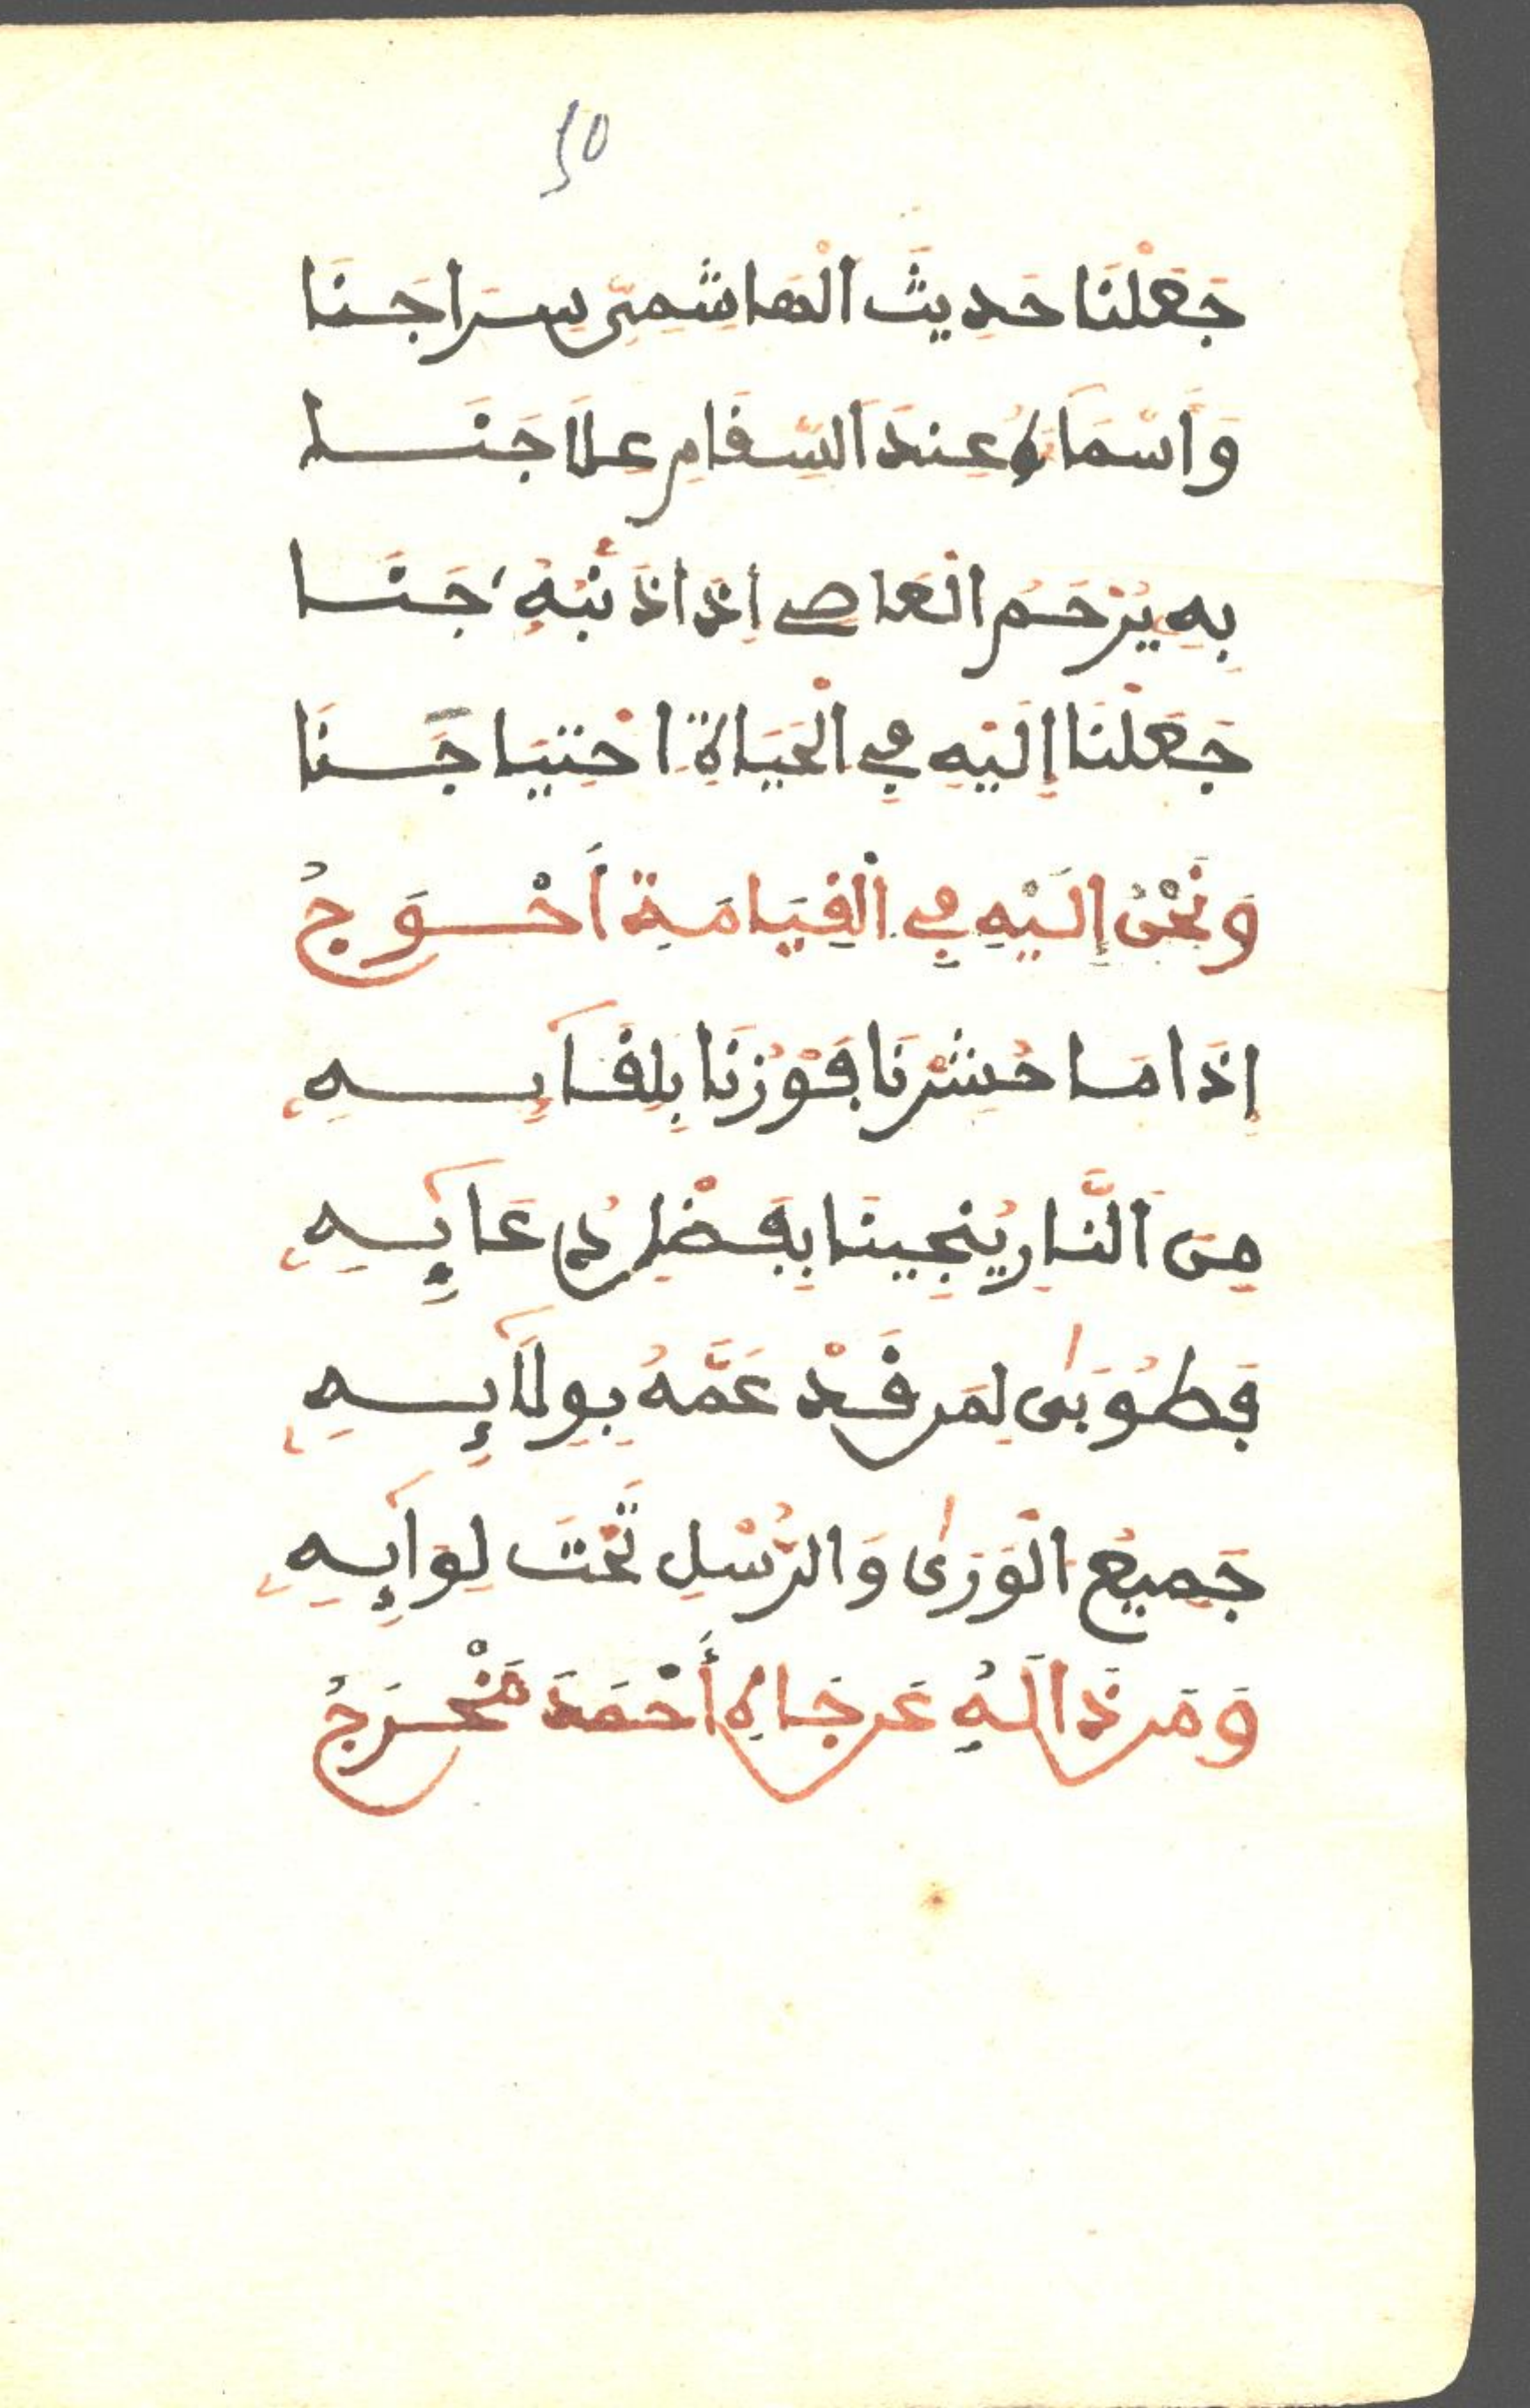 ٢٥
جَعَلْنَا حَدِيثَ الْهَاشِمِيِّ سِرَاجَنَا
وَأَسْمَاهُ عِندَ السِّقَامِ عِلَاجَنَا
بِهِ يُرْحَمُ الْعَاصِي إِذَا ذَنْبُهُ جَنَا
جَعَلْنَا إِلَيْهِ فِي الْحَيَاةِ احْتِيَاجَنَا
وَنَحْنُ إِلَيْهِ فِي الْقِيَامَةِ أَحْوَجُ
إِذَا مَا حُشِرْنَا فَوْزُنَا بِلِقَآئِهِ
مِنَ النَّارِ يُنجِينَا بِفَضْلِ دُعَآئِهِ
فَطُوبَىٰ لِمَن قَدْ عَمَّهُ بِوِلَآئِهِ
جَمِيعُ الْوَرَىٰ وَالرُّسْلِ تَحْتَ لِوَآئِهِ
وَمَن ذَا لَهُ عَن جَاهِ أَحْمَدَ مَخْرَجُ